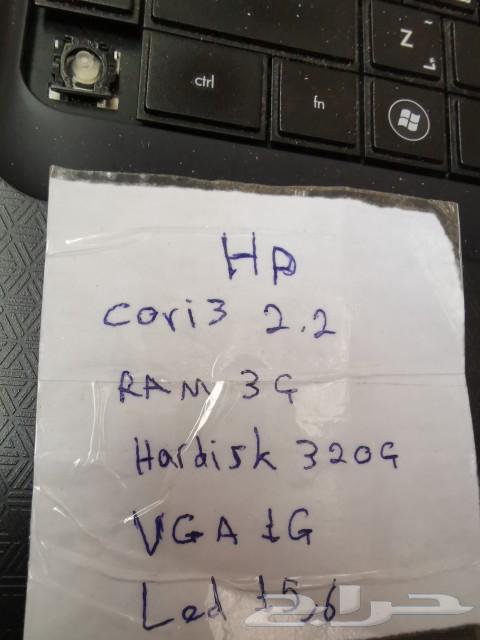 Z
ctrl
fn
HP
Cori3 2.2
RAM 3G
Hardisk 320G
VGA 1G
Led 15,6
حراج